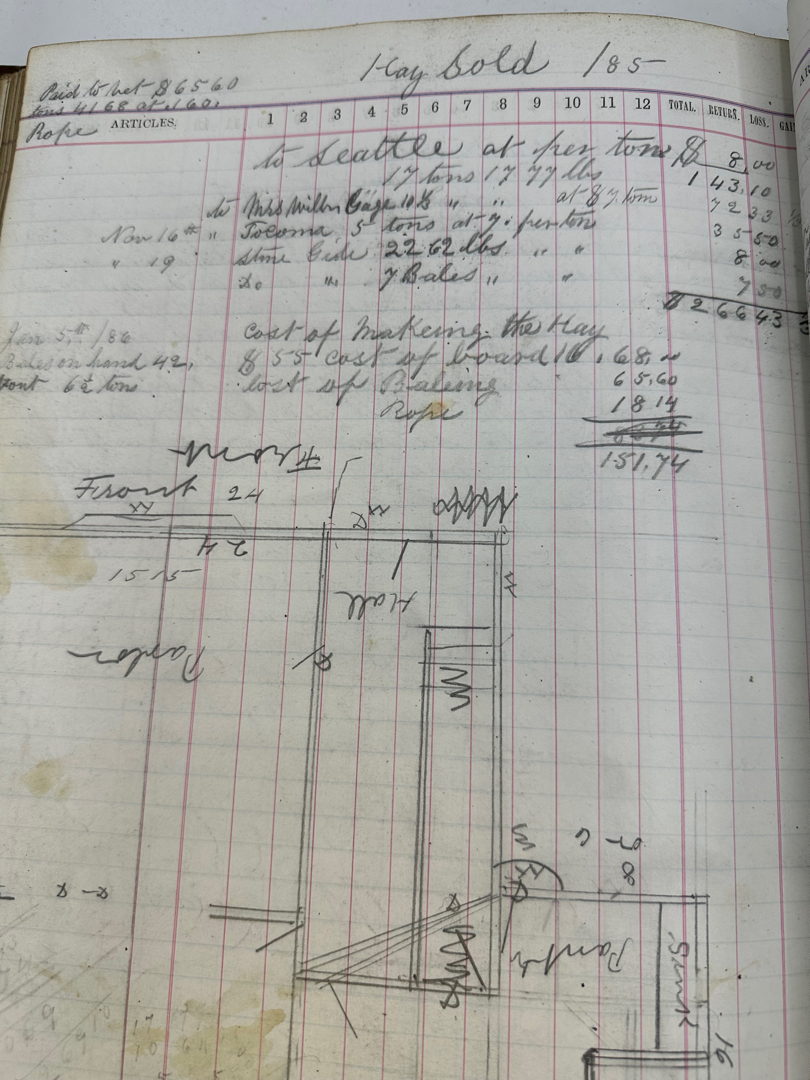 Hay Sold /85
Paid to het $65 60
tons 41 68 at .160.
Rope
ARTICLES. 1 2 3 4 5 6 7 8 9 10 11 12 TOTAL. RETURN. LOSS. GAI
to Seattle at per tons $ 8,00
17 tons 17 77 lbs 1 43,10
to Mrs Wilbr Gage 10 ½ " " at $7 tom 72 33
Nov 16th " Tocoma 5 tons at 7. per ton 35 50
" 19 stme Gide 22 62 lbs. " " 8 00
Do " 7 Bales " " 7 50
$ 2 66 43
Jan 5th /86 Cost of Makeing the Hay
Bales on hand 42, $55 cost of board 16, 68,00
6½ tons cost of Baleing 65,60
Rope 18 14
151,74
Front
Front 24
24
15 15
Hall
Parlor
Pantr
Sink
16